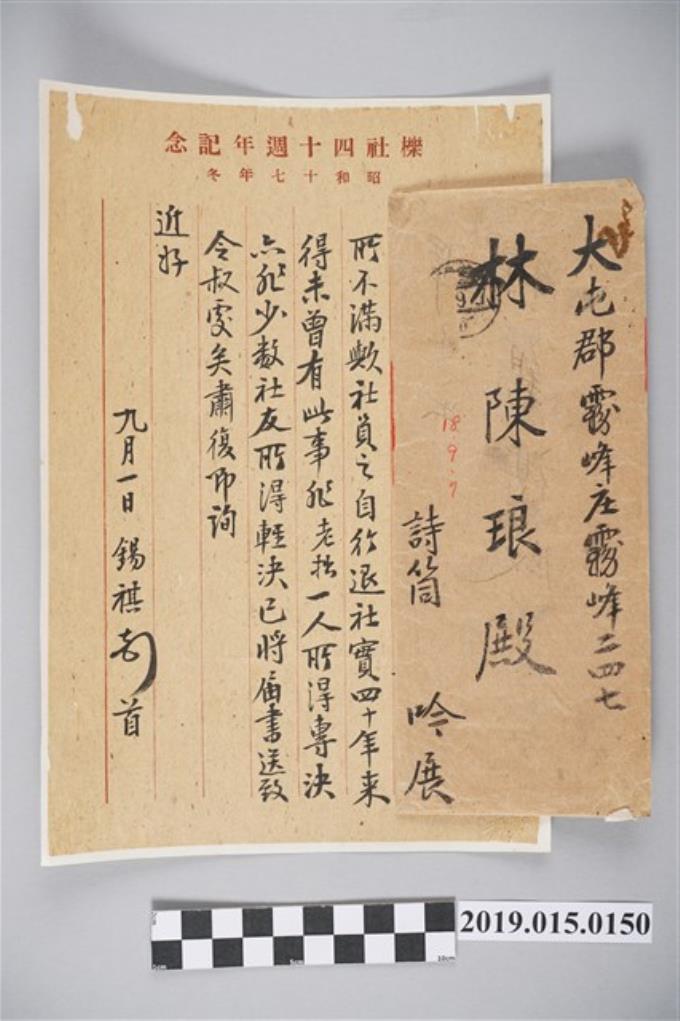 櫟社四十週年記念
昭和十七年冬
所不滿歟社員之自行退社實四十年来
得未曾有此事非老拙一人所得專決
亦非少数社友所得輕決已將屆書送致
令叔處矣肅復即詢
近好
九月一日 錫祺 首
大屯郡霧峰庄霧峰二四七
林陳琅殿
詩筒 吟展
18.9.7
2019.015.0150
5cm
10cm